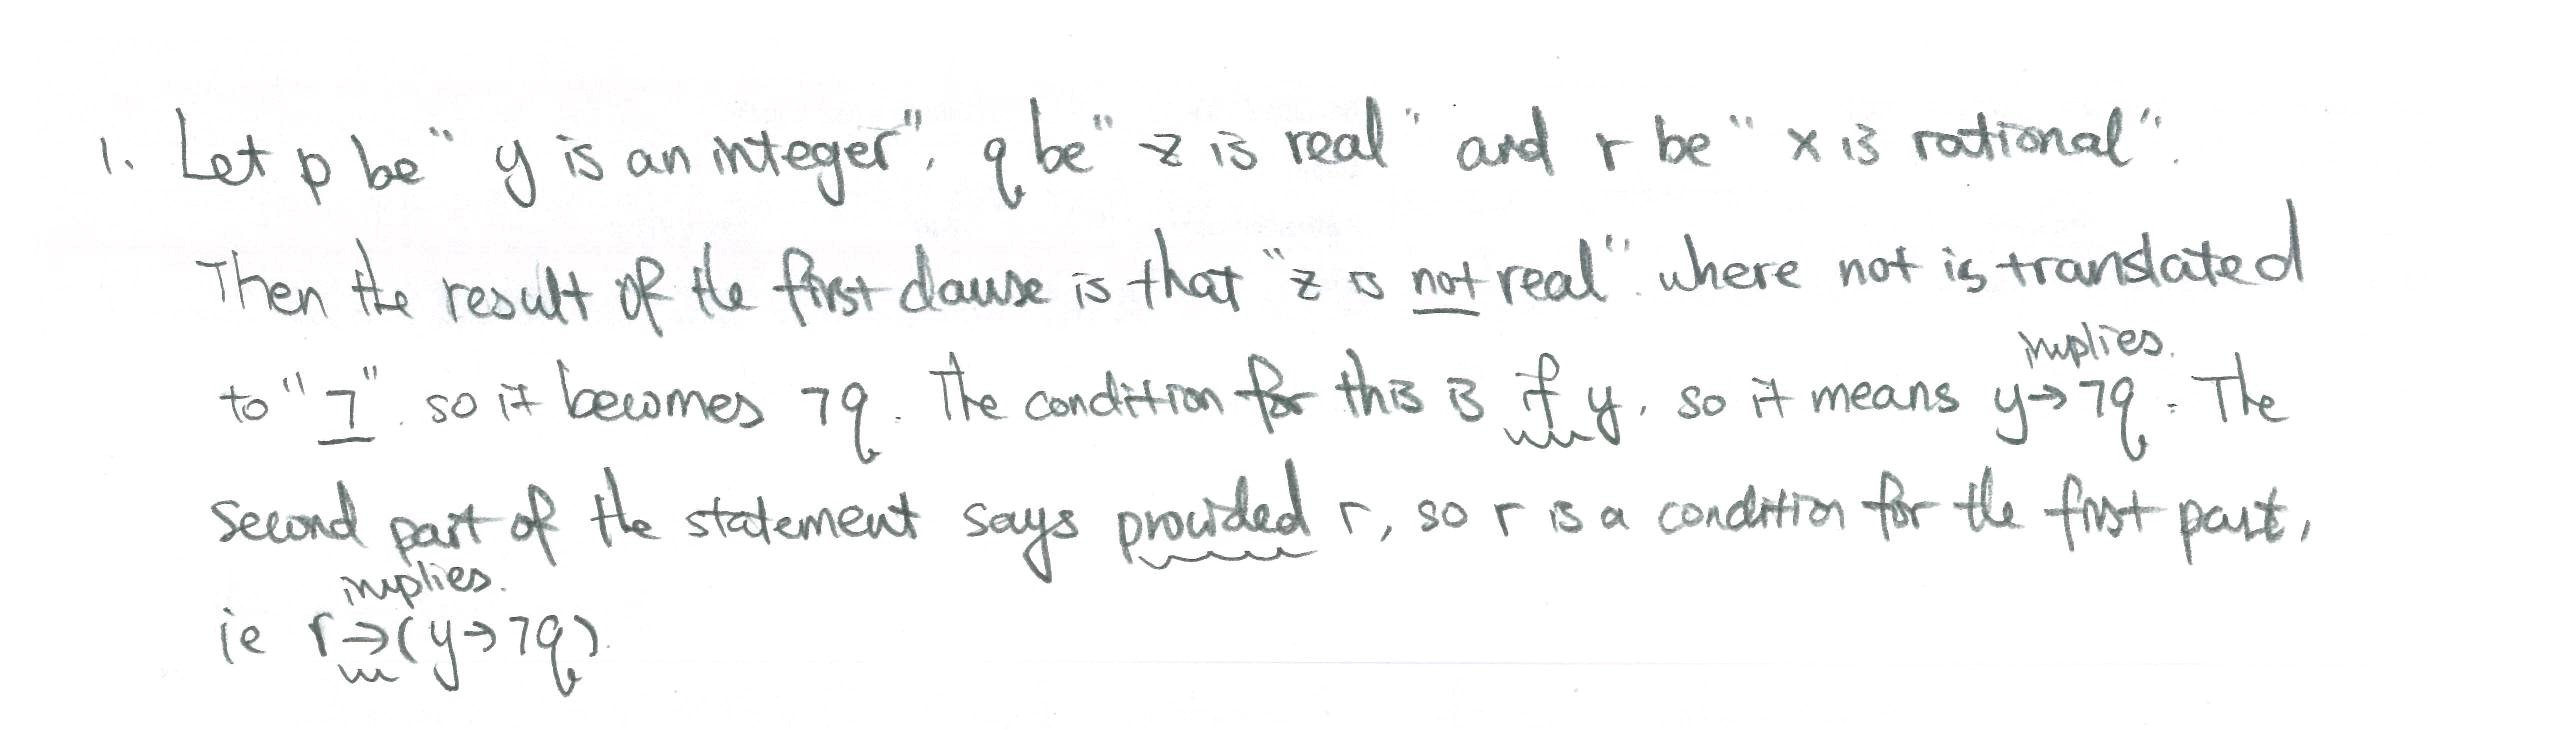 1. Let p be "y is an integer", q be "z is real" and r be "x is rational".
Then the result of the first clause is that "z is not real". where not is translated
implies.
to "¬". so it becomes ¬q. The condition for this is if y, so it means y→¬q. The
second part of the statement says provided r, so r is a condition for the first part,
implies.
ie r→(y→¬q).